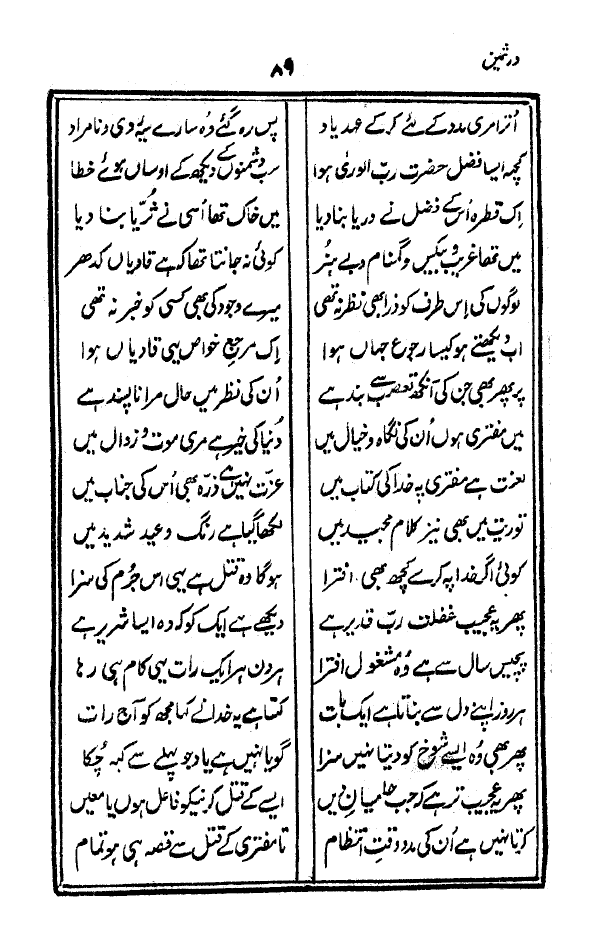 درثمین
۸۹
اُترا مری مدد کے لئے کر کے عہد یاد
پس رہ گئے وہ سارے سیہ رُوی و نامراد
کچھ ایسا فضل حضرت ربّ الورٰی ہوا
سب دشمنوں کے دیکھ کے اوساں ہوئے خطا
اِک قطرہ اُس کے فضل نے دریا بنا دیا
میں خاک تھا اُسی نے ثریّا بنا دیا
میں تھا غریب و بیکس و گمنام و بے ہُنر
کوئی نہ جانتا تھا کہ ہے قادیاں کدھر
لوگوں کی اِس طرف کو ذرا بھی نظر نہ تھی
میرے وجود کی بھی کسی کو خبر نہ تھی
اب دیکھتے ہو کیسا رجوعِ جہاں ہوا
اِک مرجعِ خواص یہی قادیاں ہوا
پر پھر بھی جن کی آنکھ تعصّب سے بند ہے
اُن کی نظر میں حال مرا ناپسند ہے
میں مفتری ہوں اُن کی نگاہ و خیال میں
دُنیا کی خیر ہے مری موت و زوال میں
لعنت ہے مفتری پہ خدا کی کتاب میں
عزّت نہیں ہے ذرّہ بھی اُس کی جناب میں
توریت میں بھی نیز کلامِ مجید میں
لکھا گیا ہے رنگِ وعیدِ شدید میں
کوئی اگر خدا پہ کرے کچھ بھی افترا
ہوگا وہ قتل ہے یہی اس جُرم کی سزا
پھر یہ عجیب غفلتِ ربّ قدیر ہے
دیکھے ہے ایک کو کہ وہ ایسا شریر ہے
پچیس سال سے ہے وُہ مشغولِ افترا
ہر دن ہر ایک رات یہی کام ہی رہا
ہر روز اپنے دل سے بناتا ہے ایک بات
کہتا ہے یہ خدا نے کہا مجھ کو آج رات
پھر بھی وُہ ایسے شوخ کو دیتا نہیں سزا
گویا نہیں ہے یاد جو پہلے سے کہہ چُکا
پھر یہ عجیب تر ہے کہ جب حامیانِ دیں
ایسے کے قتل کرنے کو فاعل ہوں یا معیں
کرتا نہیں ہے اُن کی مدد وقتِ انتظام
تا مفتری کے قتل سے قصہ ہی ہو تمام